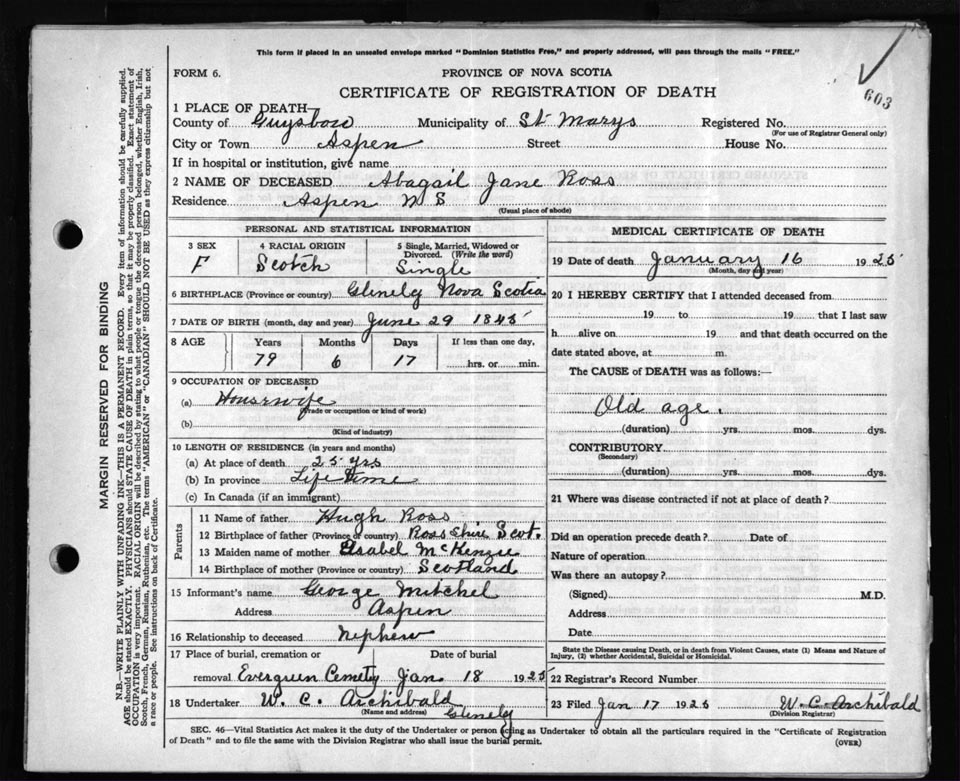 This form if placed in an unsealed envelope marked "Dominion Statistics Free," and properly addressed, will pass through the mails "FREE."
603
FORM 6.
PROVINCE OF NOVA SCOTIA
CERTIFICATE OF REGISTRATION OF DEATH
1 PLACE OF DEATH—
County of Guysboro Municipality of St Marys Registered No.
(For use of Registrar General only)
City or Town Aspen Street House No.
If in hospital or institution, give name
2 NAME OF DECEASED Abagail Jane Ross
Residence Aspen N S
(Usual place of abode)
PERSONAL AND STATISTICAL INFORMATION
3 SEX
F
4 RACIAL ORIGIN
Scotch
5 Single, Married, Widowed or Divorced. (Write the word)
Single
6 BIRTHPLACE (Province or country) Glenelg Nova Scotia
7 DATE OF BIRTH (month, day and year) June 29 1845
8 AGE Years Months Days If less than one day,
79 6 17 hrs. or min.
9 OCCUPATION OF DECEASED
(a) Housewife
(Trade or occupation or kind of work)
(b)
(Kind of industry)
10 LENGTH OF RESIDENCE (in years and months)
(a) At place of death 25 yrs
(b) In province Life time
(c) In Canada (if an immigrant)
Parents
11 Name of father Hugh Ross
12 Birthplace of father (Province or country) Ross Shire Scot.
13 Maiden name of mother Isabel McKenzie
14 Birthplace of mother (Province or country) Scotland
15 Informant's name George Mitchel
Address Aspen
16 Relationship to deceased nephew
17 Place of burial, cremation or Date of burial
removal Evergreen Cemetry Jan 18 1925
18 Undertaker W. C. Archibald
(Name and address) Glenelg
MEDICAL CERTIFICATE OF DEATH
19 Date of death January 16 1925
(Month, day and year)
20 I HEREBY CERTIFY that I attended deceased from
19 to 19 that I last saw
h alive on 19 and that death occurred on the
date stated above, at m.
The CAUSE of DEATH was as follows:—
Old age.
(duration) yrs. mos. dys.
CONTRIBUTORY
(Secondary)
(duration) yrs. mos. dys.
21 Where was disease contracted if not at place of death?
Did an operation precede death? Date of
Nature of operation
Was there an autopsy?
(Signed) M.D.
Address
Date
State the Disease causing Death, or in death from Violent Causes, state (1) Means and Nature of
Injury, (2) whether Accidental, Suicidal or Homicidal.
22 Registrar's Record Number
23 Filed Jan 17 1925 W. C. Archibald
(Division Registrar)
SEC. 46—Vital Statistics Act makes it the duty of the Undertaker or person acting as Undertaker to obtain all the particulars required in the "Certificate of Registration
of Death" and to file the same with the Division Registrar who shall issue the burial permit.
(OVER)
MARGIN RESERVED FOR BINDING
N.B.—WRITE PLAINLY WITH UNFADING INK—THIS IS A PERMANENT RECORD. Every item of information should be carefully supplied.
AGE should be stated EXACTLY. PHYSICIANS should STATE CAUSE OF DEATH in plain terms, so that it may be properly classified. Exact statement of
OCCUPATION is very important. RACIAL ORIGIN will be described by stating to what people or tongue the deceased person belonged, whether English, Irish,
Scotch, French, German, Russian, Ruthenian, etc. The terms "AMERICAN" or "CANADIAN" SHOULD NOT BE USED as they express citizenship but not
a race or people. See instructions on back of Certificate.